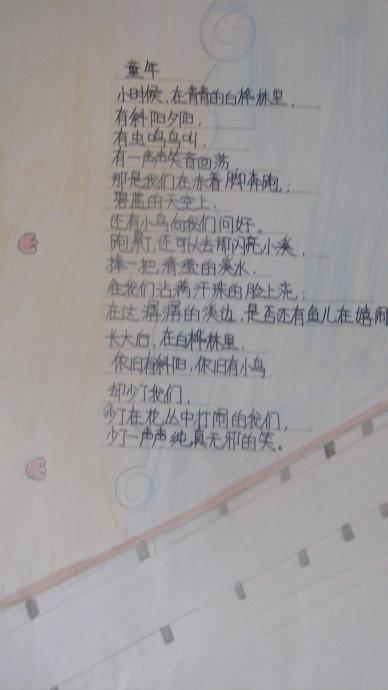 童年
小时候,在青青的白桦林里,
有斜阳夕阳,
有虫鸣鸟叫,
有一声声笑音回荡,
那是我们在赤着脚奔跑;
碧蓝的天空上,
还有小鸟向我们问好。
跑累了,还可以去那闪亮小溪,
捧一把清莹的溪水,
在我们沾满汗珠的脸上浇;
在这潺潺的溪边,是否还有鱼儿在嬉闹
长大后,在白桦林里,
依旧有斜阳,依旧有小鸟
却少了我们,
少了在花丛中打闹的我们,
少了一声声纯真无邪的笑。